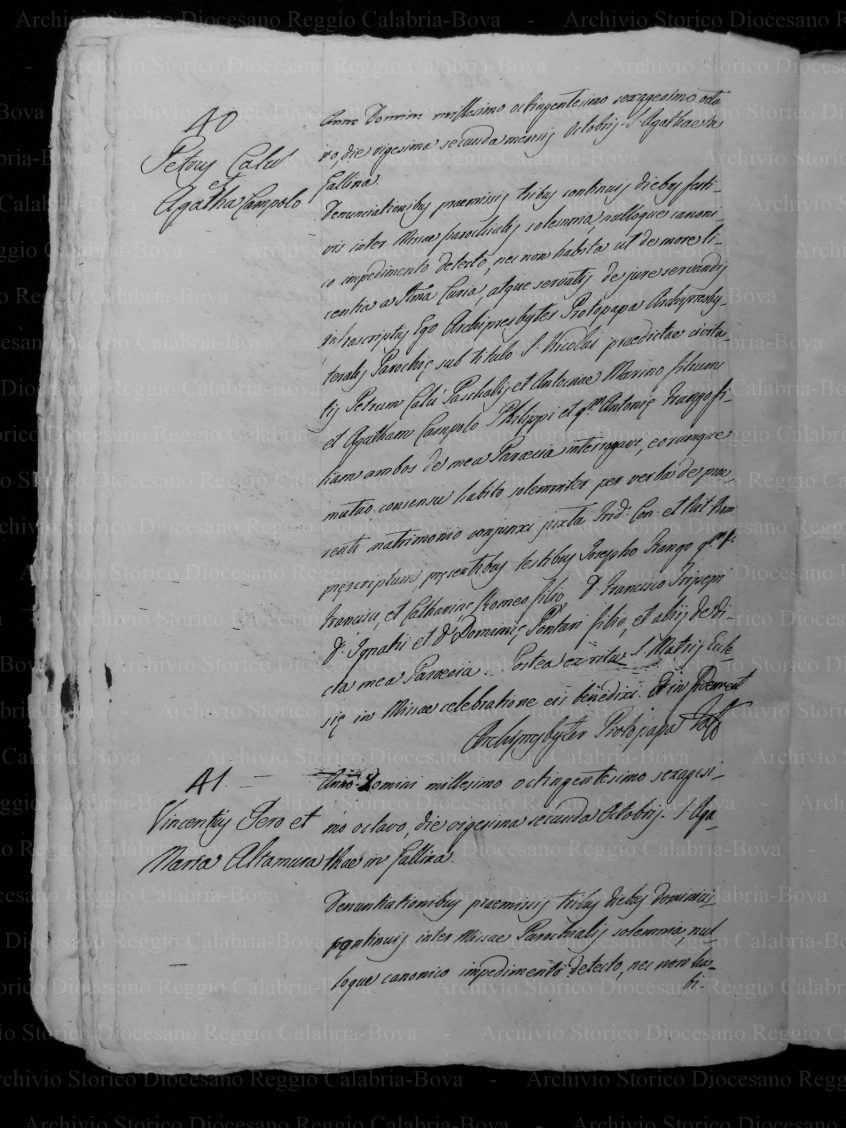 40
Petrus Calù
et
Agatha Campolo
Anno Domini millesimo octingentesimo sexagesimo octa
vo, die vigesima secunda mensis Octobris. S. Agathae in
Gallina.
Denunciationibus praemissis tribus continuis diebus festi-
vis inter Missae parochialis solemnia, nulloque canoni-
co impedimento detecto, nec non habita ut de more li-
centia a Rma Curia, atque servatis de jure servandis
infrascriptus Ego Archipresbyter Protopapa Archipresby-
teralis Parochię sub titulo S. Nicolai praedictae civita-
tis Petrum Calù Paschalis et Antoninae Marino filium
et Agatham Campolo Philippi et qm Antonię Frango fi-
liam ambos de mea Paroecia interrogavi, eorumque
mutuo consensu habito solemniter per verba de prae-
senti matrimonio conjunxi juxta Trid. Con. et Rit. Rom
pręscriptum, pręsentibus testibus Josepho Frango qm
Francisci, et Catharinę Romeo filio, D. Francisco Tripepi
D. Ignatii et D. Dominicę Pontari filio, et aliis de di-
cta mea Paroecia. Postea ex ritu S. Matris Eccle-
się in Missae celebratione eis benedixi. Et in
Archipresbyter Protopapa
41
Vincentius Pero et
Maria Altamura
Anno Domini millesimo octingentesimo sexagesi-
mo octavo, die vigesima secunda Octobris. S. Aga-
thae in Gallina.
Denuntiationibus praemissis tribus diebus Dominicis
continuis inter Missae Parochialis solemnia, nul-
loque canonico impedimento detecto, nec non ha-
bi-
Archivio Storico Diocesano Reggio Calabria-Bova